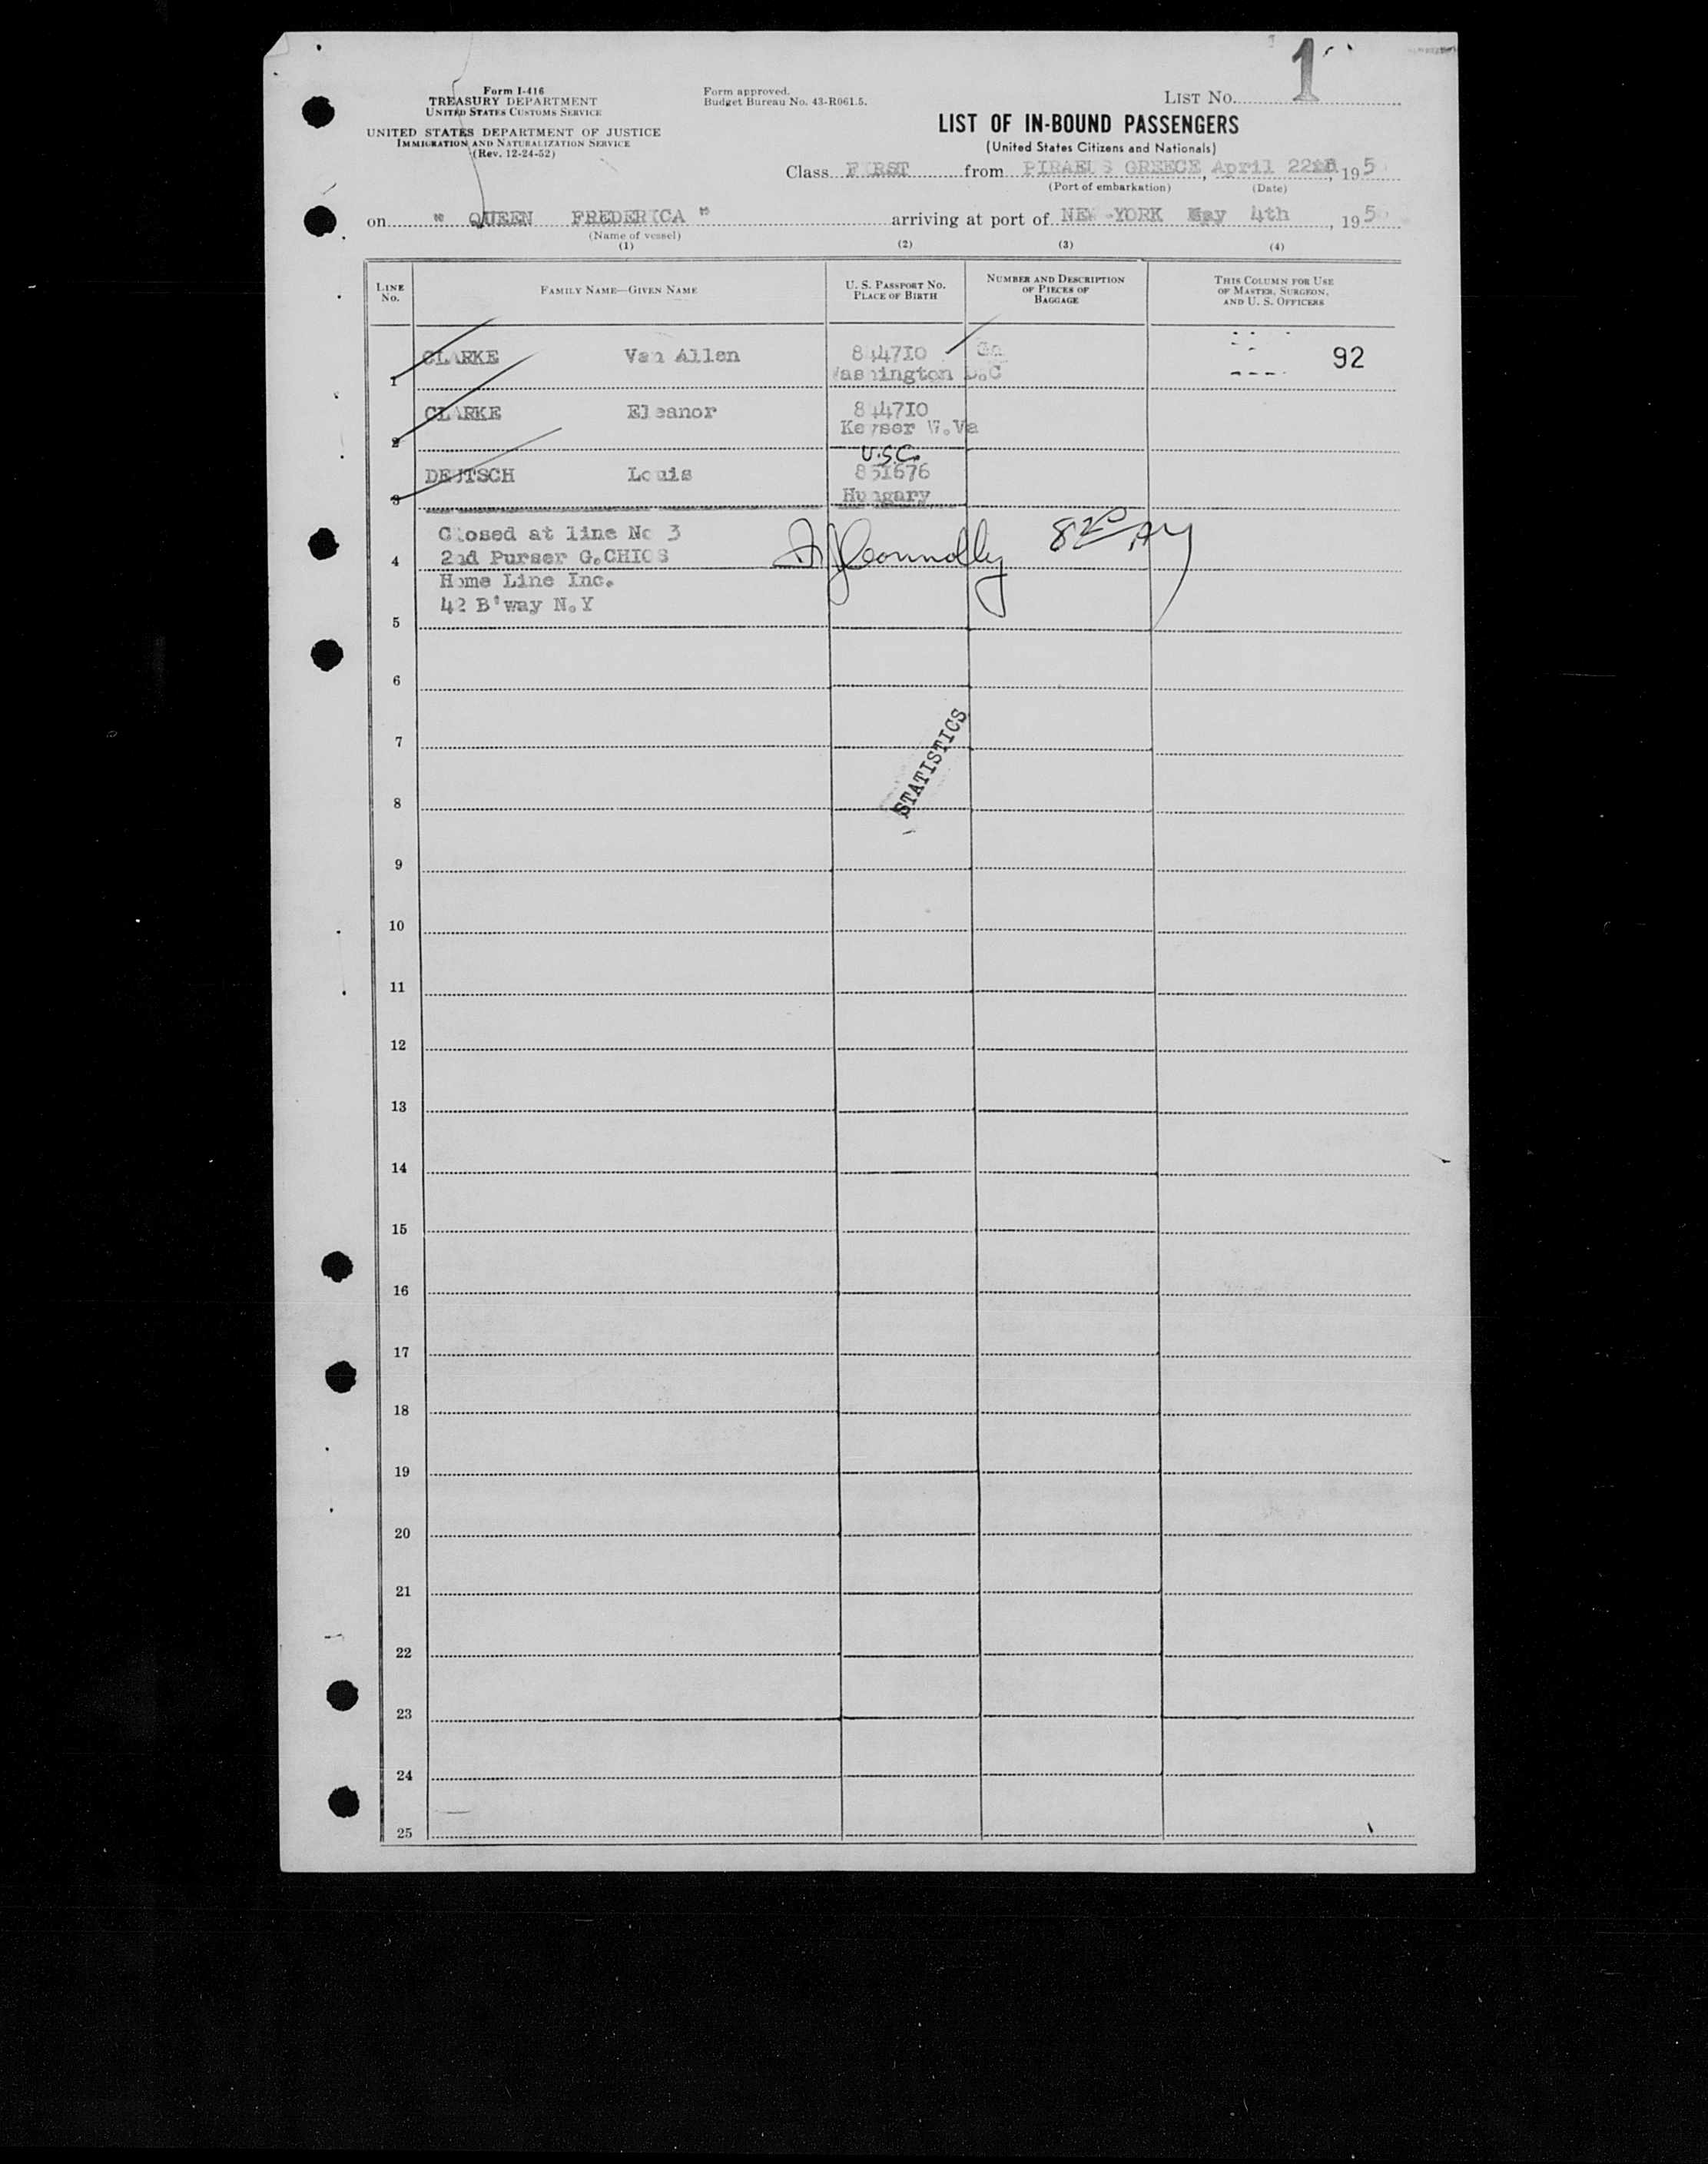 1
Form I-416
TREASURY DEPARTMENT
UNITED STATES CUSTOMS SERVICE
UNITED STATES DEPARTMENT OF JUSTICE
IMMIGRATION AND NATURALIZATION SERVICE
(Rev. 12-24-52)
Form approved.
Budget Bureau No. 43-R061.5.
LIST No.
LIST OF IN-BOUND PASSENGERS
(United States Citizens and Nationals)
Class FIRST from PIRAEUS GREECE, April 22, 195
(Port of embarkation) (Date)
on " QUEEN FREDERICA " arriving at port of NEW-YORK May 4th, 195
(Name of vessel)
(1) (2) (3) (4)
LINE No. FAMILY NAME—GIVEN NAME U. S. PASSPORT NO. PLACE OF BIRTH NUMBER AND DESCRIPTION OF PIECES OF BAGGAGE THIS COLUMN FOR USE OF MASTER, SURGEON, AND U. S. OFFICERS
1 CLARKE Van Allen 844710 92
Washington D.C
2 CLARKE Eleanor 844710
Keyser W.Va
U.S.C.
3 DEUTSCH Louis 851676
Hungary
Closed at line No 3
4 2nd Purser G.CHIOS Connolly 8 20 AM
Home Line Inc.
5 42 B'way N.Y
6
7
STATISTICS
8
9
10
11
12
13
14
15
16
17
18
19
20
21
22
23
24
25